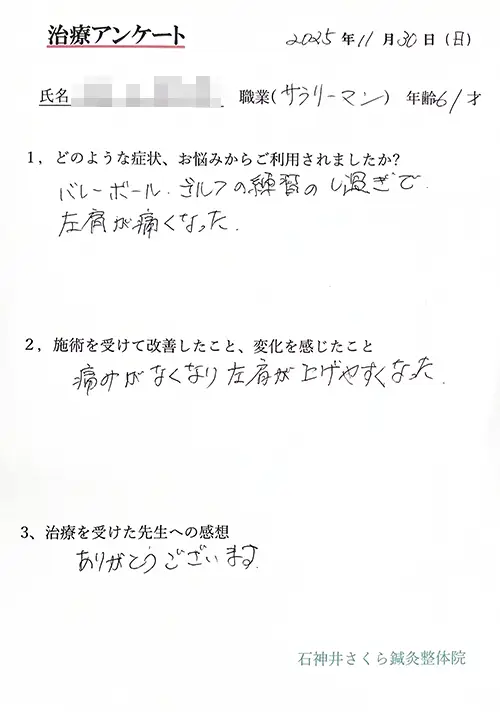 治療アンケート
2025年11月30日(日)
氏名 職業(サラリーマン) 年齢61才
1，どのような症状、お悩みからご利用されましたか?
バレーボール．ゴルフの練習のし過ぎで．
左肩が痛くなった．
2，施術を受けて改善したこと、変化を感じたこと
痛みがなくなり左肩が上げやすくなった．
3、治療を受けた先生への感想
ありがとうございます．
石神井さくら鍼灸整体院